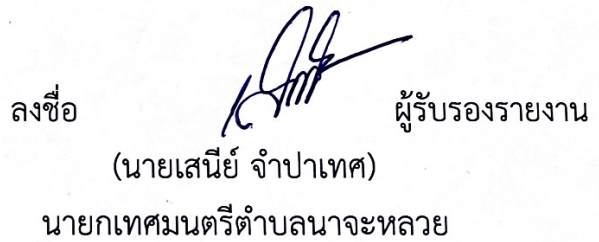 ลงชื่อ ผู้รับรองรายงาน
(นายเสนีย์ จำปาเทศ)
นายกเทศมนตรีตำบลนาจะหลวย